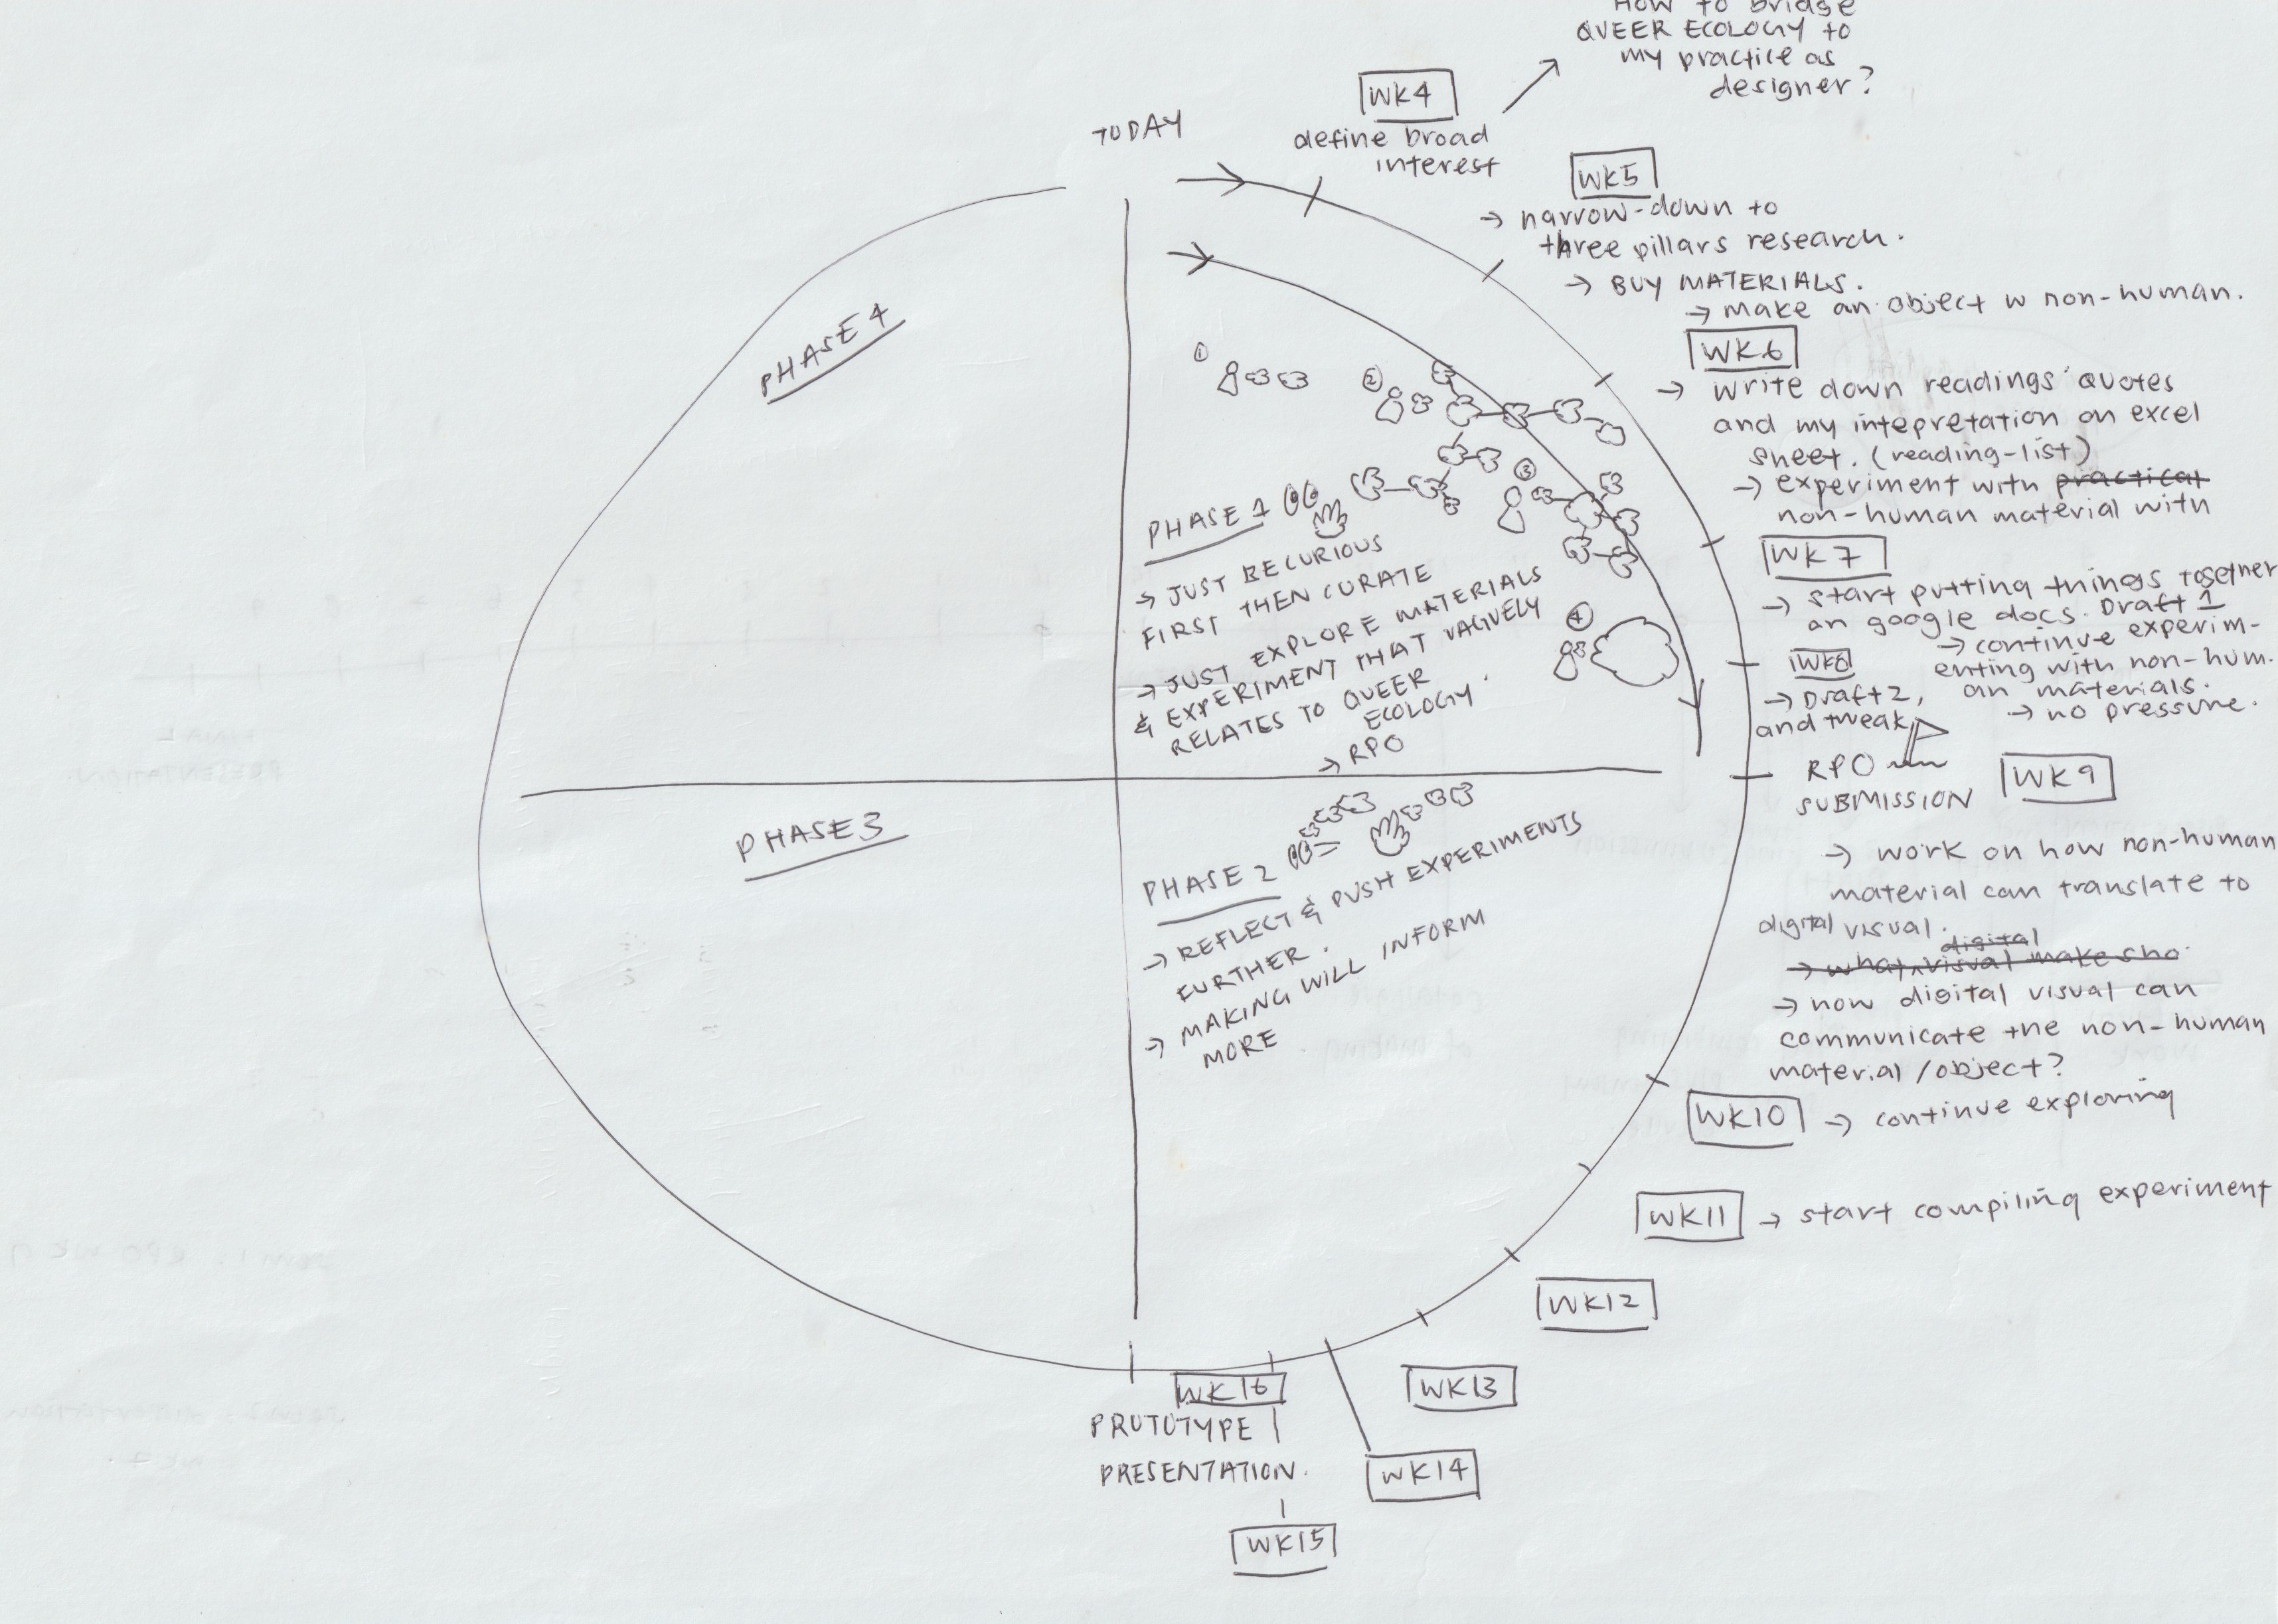 HOW TO BRIDGE
QUEER ECOLOGY TO
my practice as
designer?
TODAY
WK4
define broad
interest
WK5
→ narrow-down to
three pillars research.
→ BUY MATERIALS.
→ make an object w non-human.
WK6
→ write down readings' quotes
and my intepretation on excel
sheet. (reading-list)
→ experiment with practical
non-human material with
WK7
→ start putting things together
on google docs. Draft 1
→ continue experim-
enting with non-hum.
an materials.
→ no pressure.
WK8
→ Draft 2,
and tweak
RPO
SUBMISSION
WK9
→ work on how non-human
material can translate to
digital visual.
digital
→ what visual make sho
→ how digital visual can
communicate the non-human
material/object?
WK10 → continue exploring
WK11 → start compiling experiment
WK12
WK13
WK14
WK16
PROTOTYPE
PRESENTATION.
WK15
PHASE 1
① ② ③ ④
→ JUST BE CURIOUS
FIRST THEN CURATE
→ JUST EXPLORE MATERIALS
& EXPERIMENT THAT VAGUELY
RELATES TO QUEER
ECOLOGY.
→ RPO
PHASE 2
→ REFLECT & PUSH EXPERIMENTS
FURTHER.
→ MAKING WILL INFORM
MORE
PHASE 3
PHASE 4